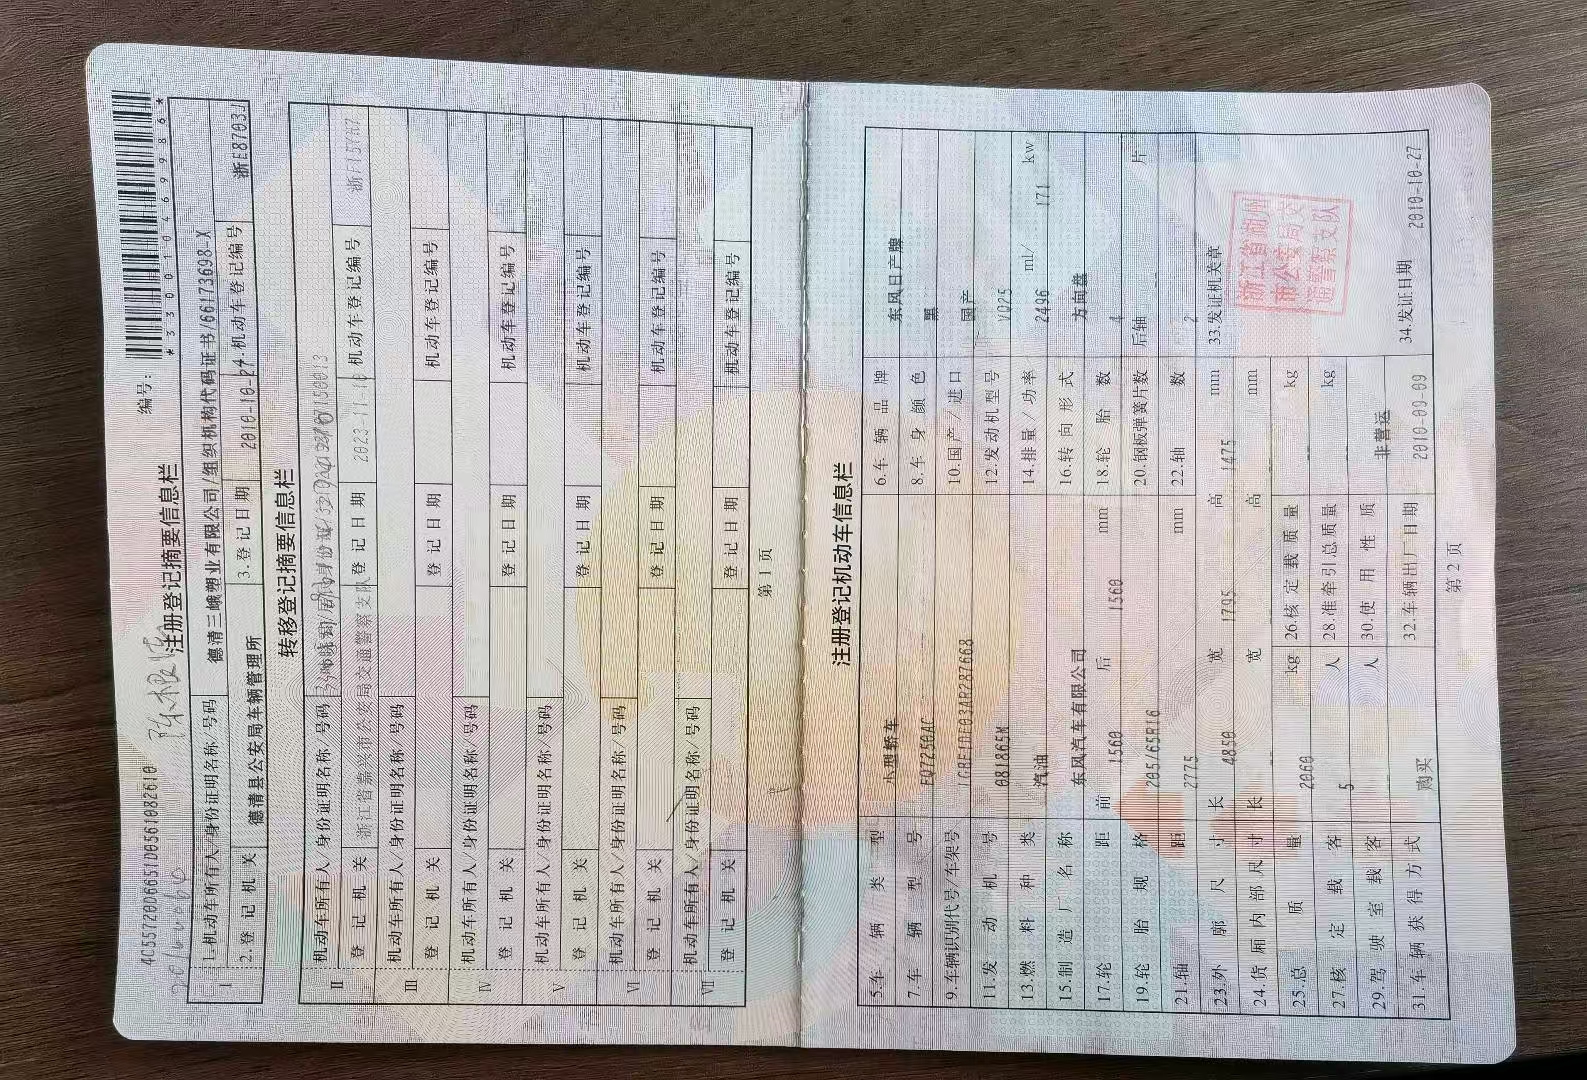 编号:
*330010469986*
4C55720D6651D0556108261 0
注册登记摘要信息栏
Ⅰ 1.机动车所有人/身份证明名称/号码 德清三峨塑业有限公司/组织机构代码证书/66173698-X
2.登记机关 德清县公安局车辆管理所 3.登记日期 2010-10-27 4.机动车登记编号 浙E8703J
转移登记摘要信息栏
Ⅱ 机动车所有人/身份证明名称/号码
登记机关 浙江省嘉兴市公安局交通警察支队 登记日期 2023-11-10 机动车登记编号 浙F157H7
Ⅲ 机动车所有人/身份证明名称/号码
登记机关 登记日期 机动车登记编号
Ⅳ 机动车所有人/身份证明名称/号码
登记机关 登记日期 机动车登记编号
Ⅴ 机动车所有人/身份证明名称/号码
登记机关 登记日期 机动车登记编号
Ⅵ 机动车所有人/身份证明名称/号码
登记机关 登记日期 机动车登记编号
Ⅶ 机动车所有人/身份证明名称/号码
登记机关 登记日期 机动车登记编号
第1页
注册登记机动车信息栏
5.车辆类型 小型轿车 6.车辆品牌 东风日产牌
7.车辆型号 EQ7250AC 8.车身颜色 黑
9.车辆识别代号/车架号 LGBF1DE03AR287668 10.国产/进口 国产
11.发动机号 081865M 12.发动机型号 VQ25
13.燃料种类 汽油 14.排量/功率 2496 ml/ 171 kw
15.制造厂名称 东风汽车有限公司 16.转向形式 方向盘
17.轮距 前 1560 后 1560 mm 18.轮胎数 4
19.轮胎规格 205/65R16 20.钢板弹簧片数 后轴 片
21.轴距 2775 mm 22.轴数 2
23.外廓尺寸 长 4850 宽 1795 高 1475 mm 33.发证机关章
24.货厢内部尺寸 长 宽 高 mm
浙江省湖州
市公安局交
通警察支队
25.总质量 2060 kg 26.核定载质量 kg
27.核定载客 5 人 28.准牵引总质量 kg
29.驾驶室载客 人 30.使用性质 非营运
31.车辆获得方式 购买 32.车辆出厂日期 2010-09-09 34.发证日期 2010-10-27
第2页